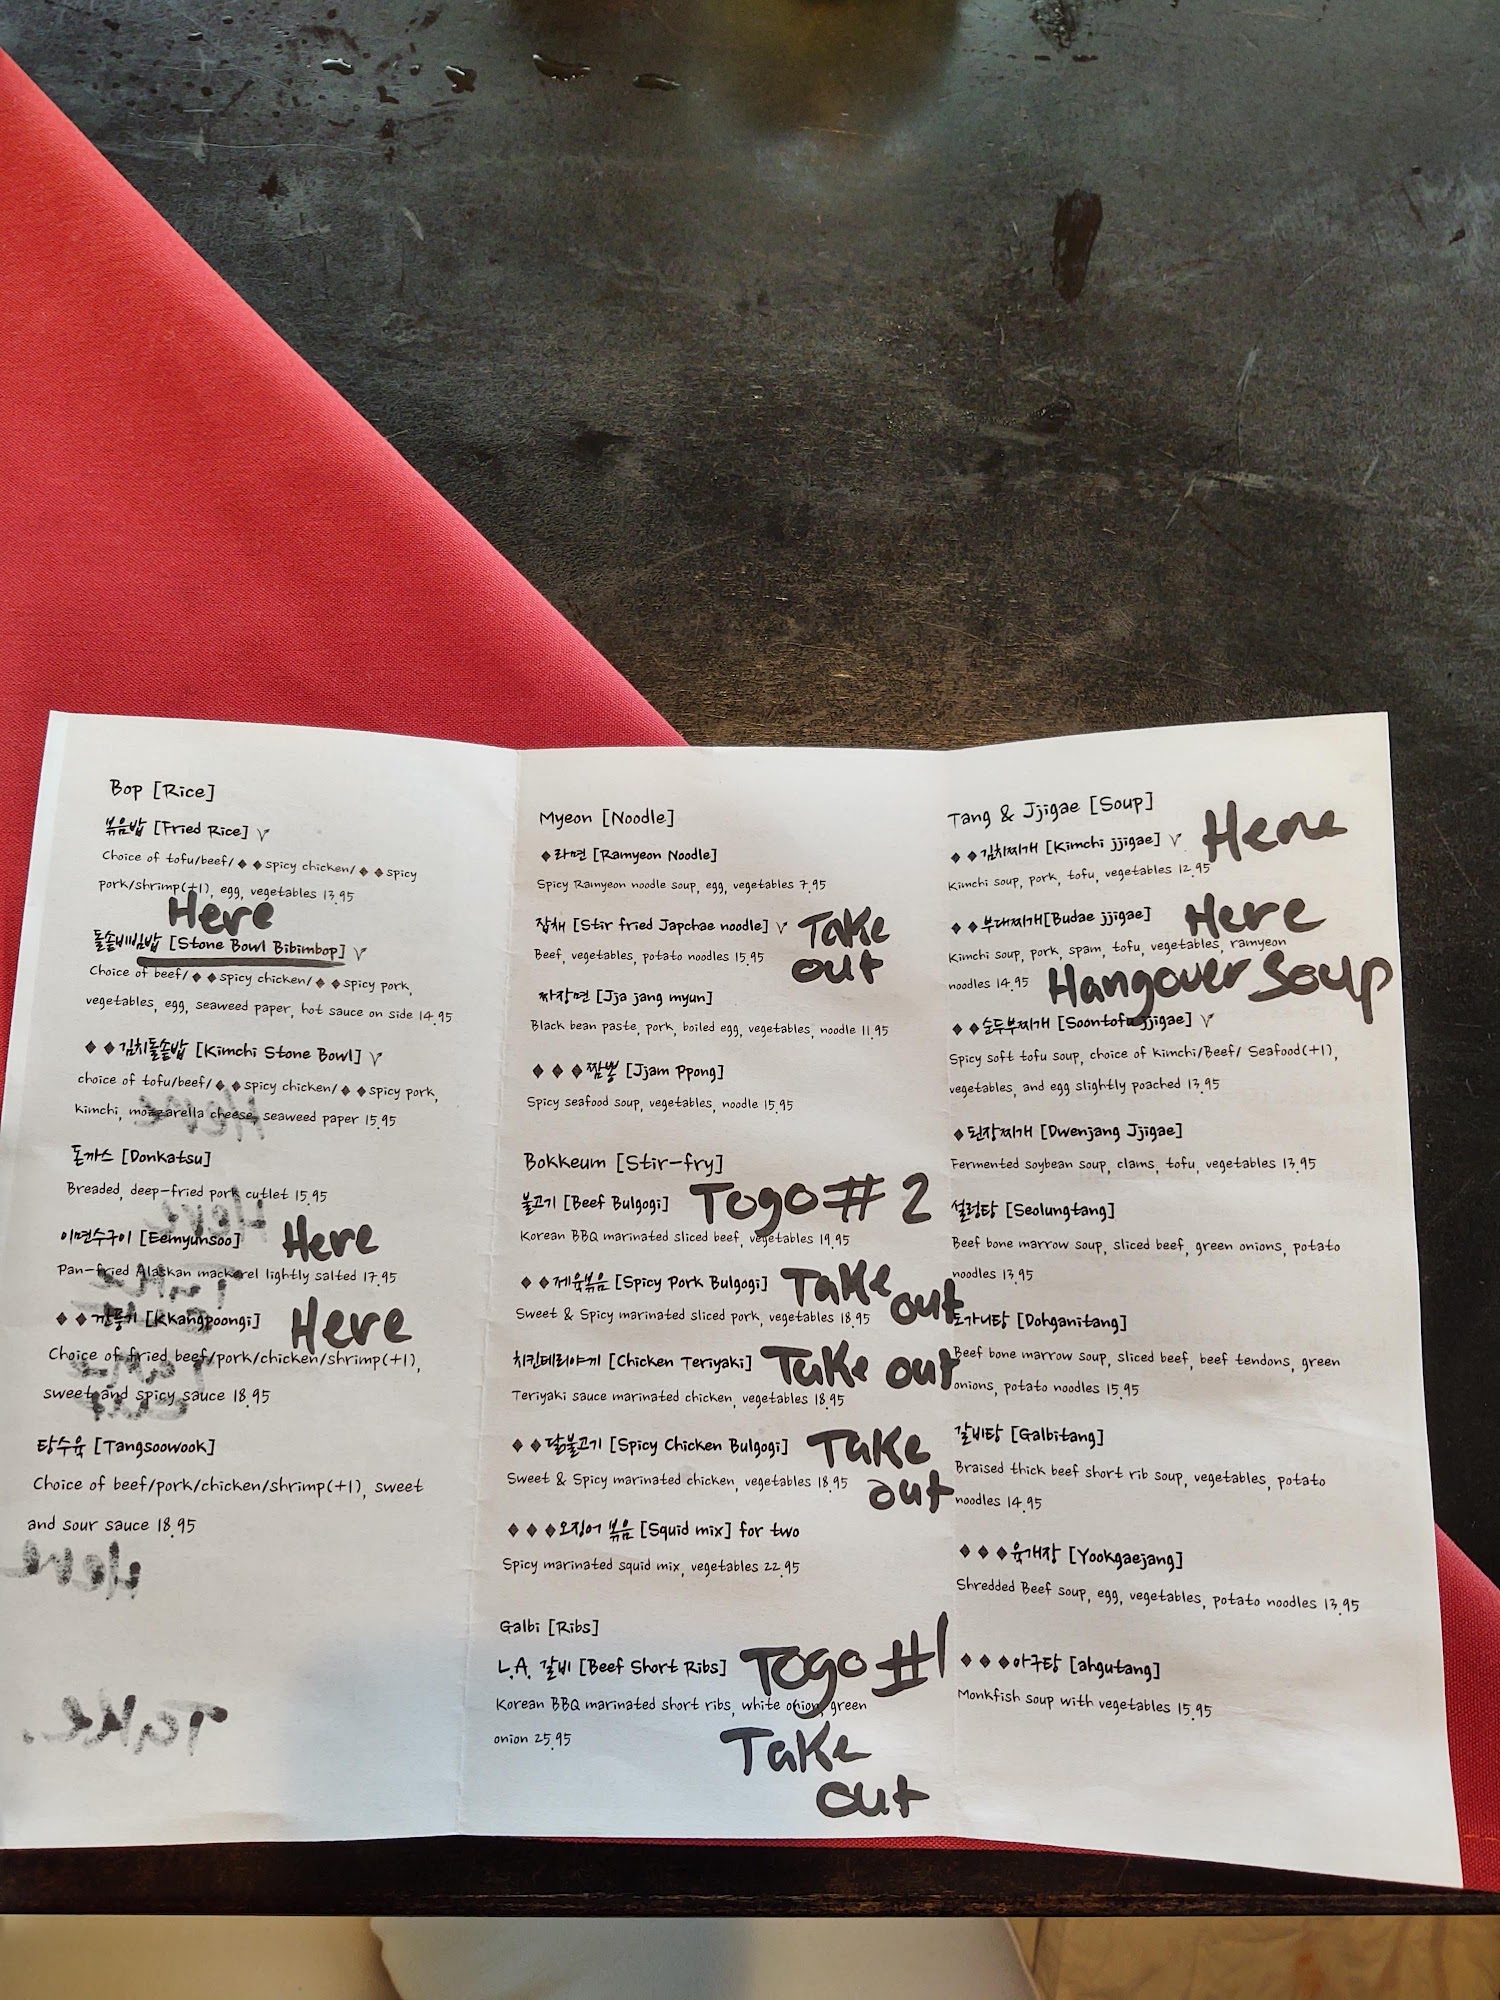 Bop [Rice]
볶음밥 [Fried Rice] V
Choice of tofu/beef/♦♦spicy chicken/♦♦spicy
pork/shrimp(+1), egg, vegetables 13.95
Here
돌솥비빔밥 [Stone Bowl Bibimbop] V
Choice of beef/♦♦spicy chicken/♦♦spicy pork,
vegetables, egg, seaweed paper, hot sauce on side 14.95
♦♦김치돌솥밥 [Kimchi Stone Bowl] V
choice of tofu/beef/♦♦spicy chicken/♦♦spicy pork,
kimchi, mozzarella cheese, seaweed paper 15.95
돈까스 [Donkatsu]
Breaded, deep-fried pork cutlet 15.95
이면수구이 [Eemyunsoo] Here
Pan-fried Alaskan mackerel lightly salted 17.95
♦♦깐풍기 [Kkangpoongi] Here
Choice of fried beef/pork/chicken/shrimp(+1),
sweet and spicy sauce 18.95
탕수육 [Tangsoowook]
Choice of beef/pork/chicken/shrimp(+1), sweet
and sour sauce 18.95
Myeon [Noodle]
♦라면 [Ramyeon Noodle]
Spicy Ramyeon noodle soup, egg, vegetables 7.95
잡채 [Stir fried Japchae noodle] V Take
Beef, vegetables, potato noodles 15.95 out
짜장면 [Jja jang myun]
Black bean paste, pork, boiled egg, vegetables, noodle 11.95
♦♦♦짬뽕 [Jjam Ppong]
Spicy seafood soup, vegetables, noodle 15.95
Bokkeum [Stir-fry]
불고기 [Beef Bulgogi] Togo # 2
Korean BBQ marinated sliced beef, vegetables 19.95
♦♦제육볶음 [Spicy Pork Bulgogi] Take out
Sweet & Spicy marinated sliced pork, vegetables 18.95
치킨테리야끼 [Chicken Teriyaki] Take out
Teriyaki sauce marinated chicken, vegetables 18.95
♦♦닭불고기 [Spicy Chicken Bulgogi] Take
Sweet & Spicy marinated chicken, vegetables 18.95 out
♦♦♦오징어 볶음 [Squid mix] for two
Spicy marinated squid mix, vegetables 22.95
Galbi [Ribs]
L.A. 갈비 [Beef Short Ribs] Togo #1
Korean BBQ marinated short ribs, white onion, green
onion 25.95
Take
out
Tang & Jjigae [Soup]
♦♦김치찌개 [Kimchi jjigae] V Here
Kimchi soup, pork, tofu, vegetables 12.95
♦♦부대찌개[Budae jjigae] Here
Kimchi soup, pork, spam, tofu, vegetables, ramyeon
noodles 14.95 Hangover Soup
♦♦순두부찌개 [Soontofu jjigae] V
Spicy soft tofu soup, choice of kimchi/Beef/ Seafood(+1),
vegetables, and egg slightly poached 13.95
♦된장찌개 [Dwenjang Jjigae]
Fermented soybean soup, clams, tofu, vegetables 13.95
설렁탕 [Seolungtang]
Beef bone marrow soup, sliced beef, green onions, potato
noodles 13.95
도가니탕 [Dohganitang]
Beef bone marrow soup, sliced beef, beef tendons, green
onions, potato noodles 15.95
갈비탕 [Galbitang]
Braised thick beef short rib soup, vegetables, potato
noodles 14.95
♦♦♦육개장 [Yookgaejang]
Shredded Beef soup, egg, vegetables, potato noodles 13.95
♦♦♦아구탕 [ahgutang]
Monkfish soup with vegetables 15.95